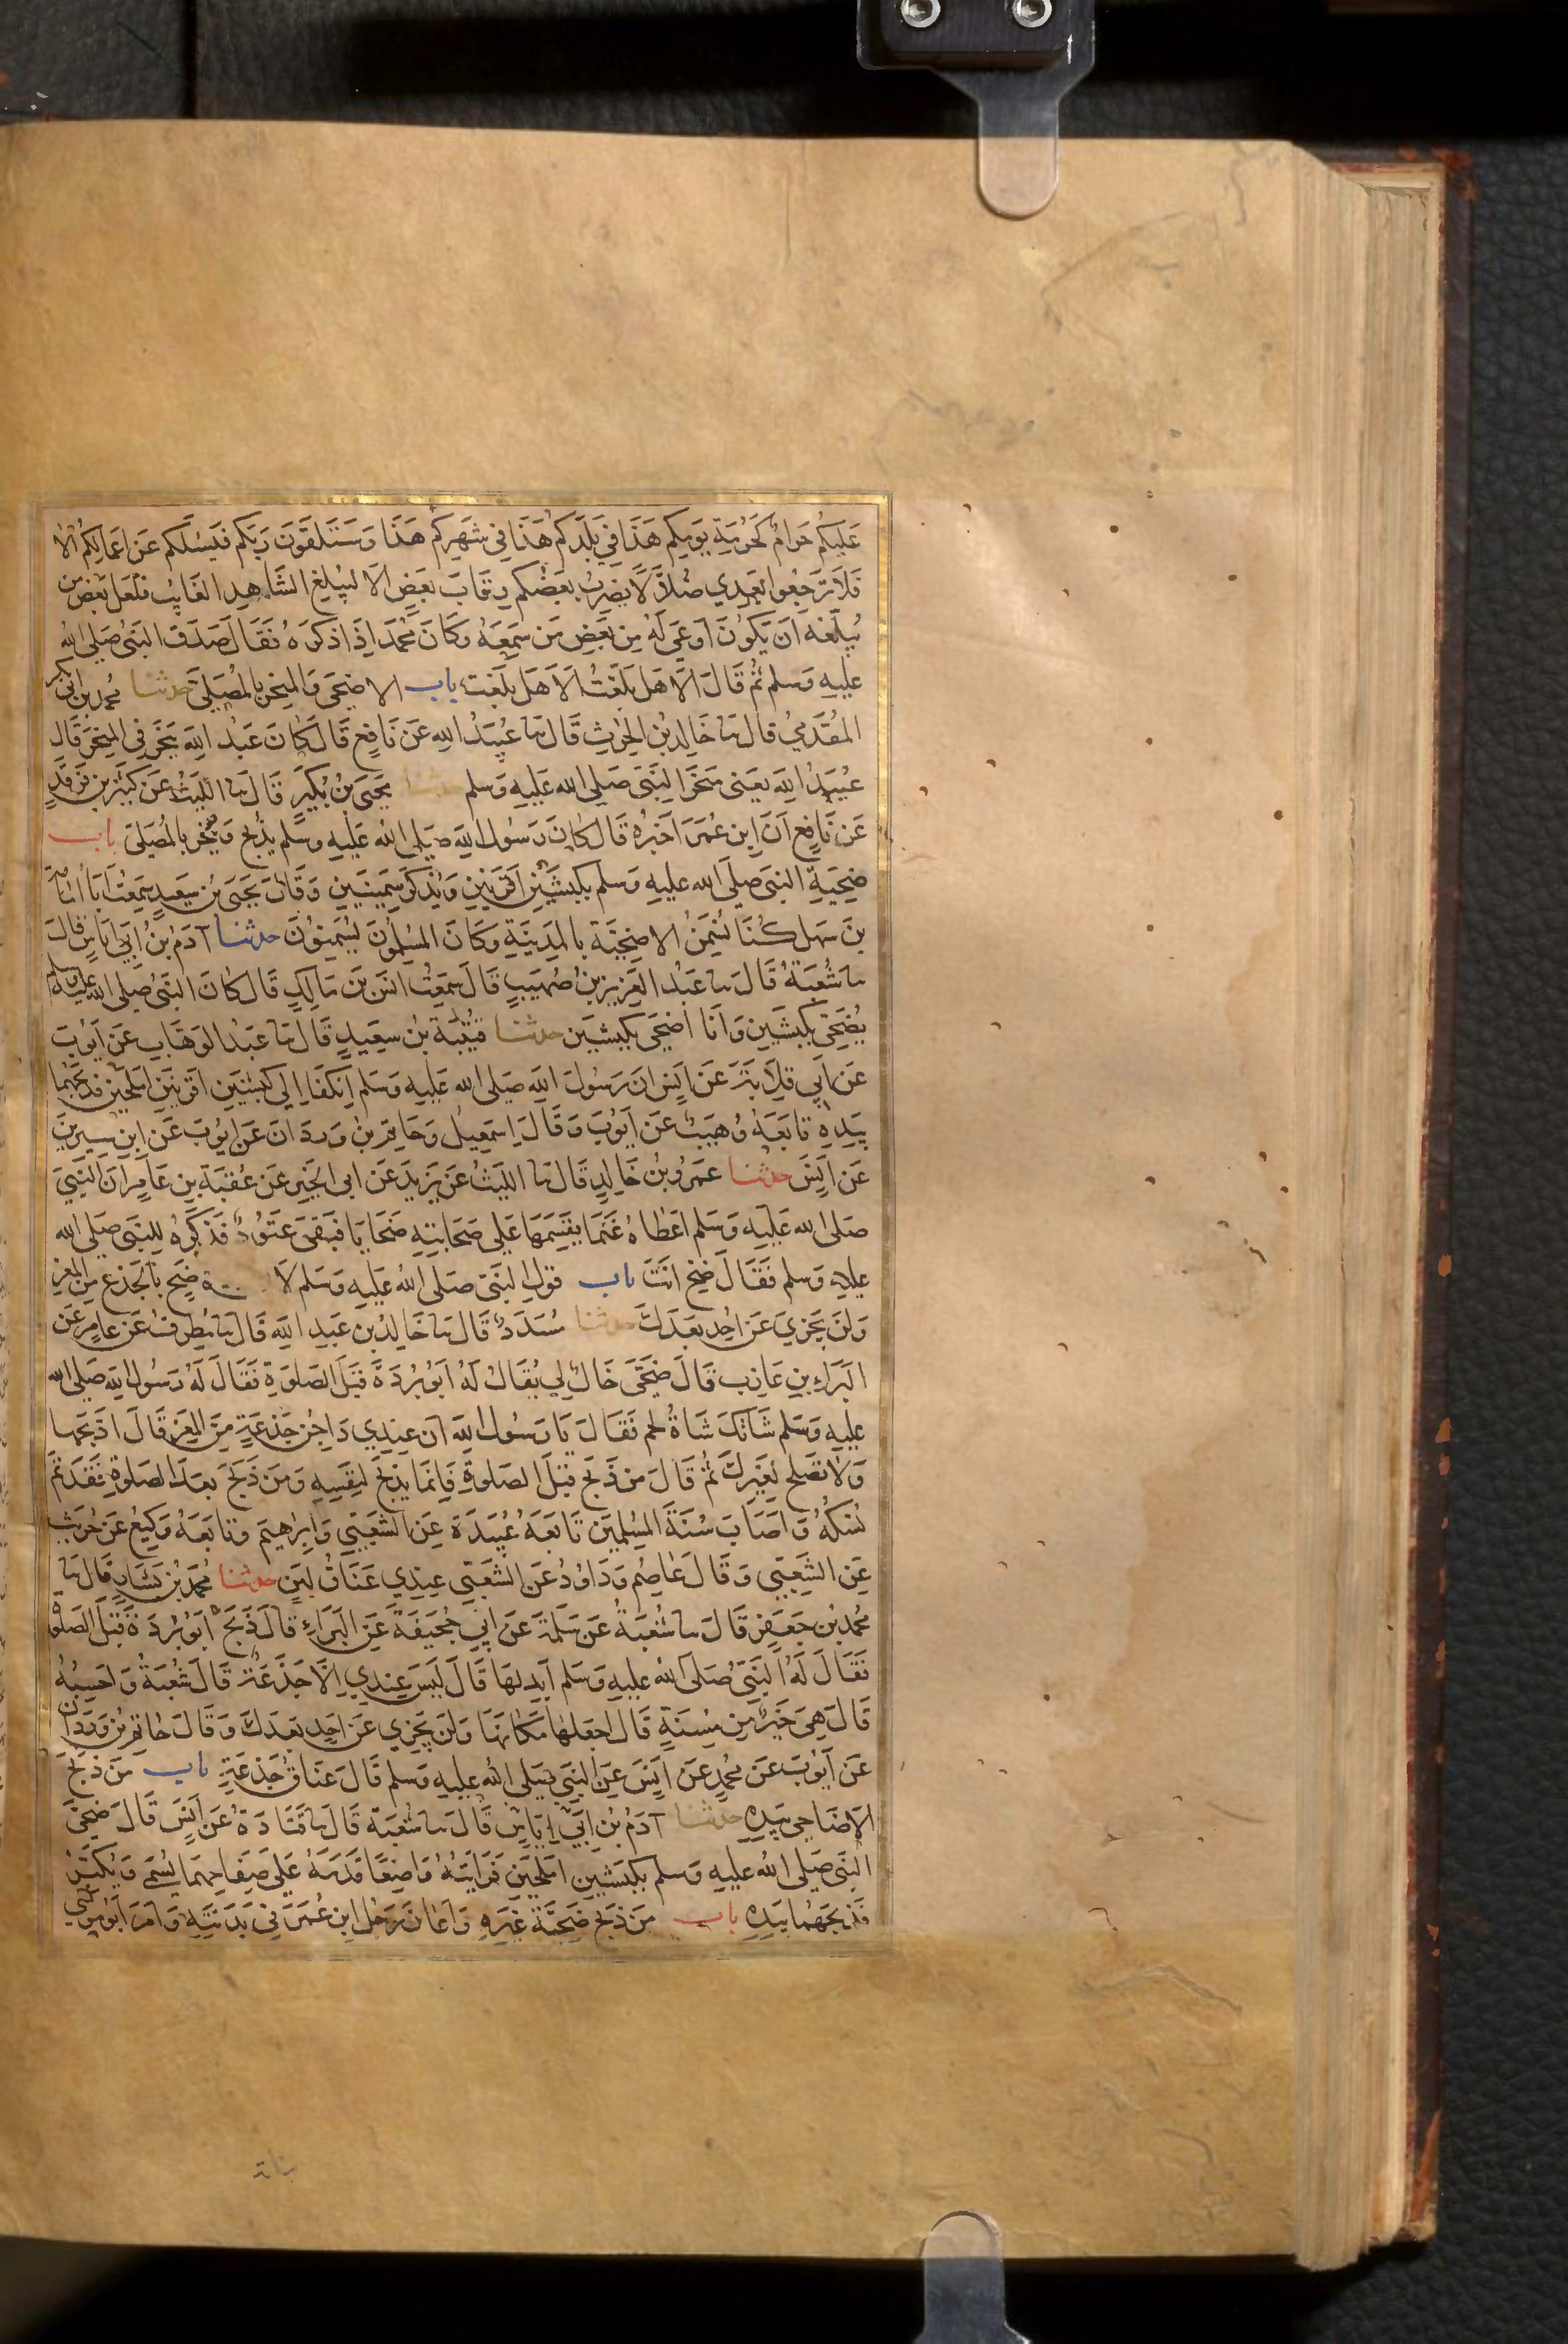 عَلَيكُم حَرامٌ كَحُرمَةِ يَومِكم هَذَا فِي بَلَدِكم هَذَا فِي شَهرِكم هَذَا وَسَتَلقَونَ رَبَّكم فَيَسئَلُكم عَن اَعمَالِكُم اَلا
فَلَا تَرجِعُوا بَعدِي ضُلَّالًا يَضرِبُ بَعضُكم رِقَابَ بَعضٍ اَلَا لِيُبلِغ الشَّاهِدُ الغَايِبَ فَلَعَلَّ بَعضَ مَن
يُبلّغه اَن يَكُونَ اَوعَى لَهُ مِن بَعضِ مَن سَمِعَهُ وَكَانَ مُحَمَّد اِذَا ذكرَهُ فَقَالَ صَدَقَ النَّبيُّ صَلى اللهُ
عليهِ وَسَلم ثُمَّ قَالَ اَلَا هَل بَلَّغتُ اَلَا هَل بَلَّغت باب الاضحَى وَالمنحَر بِالمُصَلَّى حدثنا مُحمد بن ابى بكر
المُقَدَّمِيُّ قَالَ نا خَالِد بنُ الحٰرِثِ قَالَ نا عُبَيدُ اللهِ عَن نَافِع قَالَ كَانَ عَبدُ اللهِ يَنحَر فِى المنحَر قَالَ
عُبَيدُ اللهِ يَعنى مَنحَرَ النَّبيِّ صَلى الله عَليهِ وَسَلم حدثنا يَحيَى بنُ بُكَيرٍ قَالَ نا اللَّيثُ عَن كَثِيرِ بن فَرقَدٍ
عَن نَافِعٍ اَنَّ ابنَ عُمَرَ اَخبَرَهُ قَالَ كَانَ رَسُولُ اللهِ صَلى اللهُ عَليهِ وَسَلم يَذبَح وَيَنحَر بِالمُصَلَّى باب
ضحِيَةِ النبيِّ صلى الله عليهِ وَسَلم بِكَبشَينِ اَقرَنَينِ وَيُذكَر سَمِينَينِ وَقَالَ يَحيَى بنُ سَعِيدٍ سَمِعتُ اَبَا اُمَامَةَ
بنَ سَهل كُنَّا نُسَمِّنُ الاضحِيَّة بِالمَدِينَةِ وَكَانَ المُسلِمُونَ يُسَمِّنُونَ حدثنا آدَمُ بنُ اَبِي اِيَاسٍ قَالَ
نا شُعبَةُ قَالَ نا عَبدُ العَزِيز بنُ صُهَيبٍ قَالَ سَمِعتُ اَنَسَ بنَ مَالِكٍ قَالَ كَانَ النَّبيُّ صَلى الله عليه وسلم
يُضَحِّى بِكَبشَينِ وَاَنَا اُضَحِّى بِكَبشَينِ حدثنا قُتَيبَة بنُ سعِيدٍ قَالَ نا عَبدُ الوَهَّابِ عَن اَيُّوبَ
عَن اَبِي قِلَابَةَ عَن اَنَسٍ اَنَّ رَسُولَ اللهِ صَلى الله عَليهِ وَسَلم انكَفَا اِلَى كَبشَينِ اَقرَنَينِ اَملَحَينِ فَذَبَحَهُمَا
بِيَدِهِ تَابَعَهُ وُهَيبٌ عَن اَيُّوبَ وَقَالَ اِسمٰعِيلُ وَحَاتِمُ بنُ وَردَانَ عَن اَيُّوبَ عَن ابنِ سِيرِينَ
عَن اَنَسٍ حدثنا عَمرُو بنُ خَالِدٍ قَالَ نا اللَّيثُ عَن يَزِيدَ عَن ابى الخَيرِ عَن عُقبَةَ بنِ عَامِر اَنَّ النَّبيَّ
صَلى الله عَلَيهِ وَسَلم اَعطَاهُ غَنَمًا يَقسِمَهَا عَلى صَحَابَتِهِ ضَحَايَا فَبَقِىَ عَتُودٌ فَذَكَرَهُ لِلنَّبيِّ صَلى الله
عليهِ وَسَلم فَقَالَ ضَحِّ اَنتَ باب قَولِ النَّبيِّ صَلى اللهُ عَليهِ وَسَلم لاَ ضَحِّ بِالجَذَعِ مِنَ المَعزِ
وَلَن يَجزِيَ عَن اَحَدٍ بَعدَكَ حدثنا مُسَدَّدٌ قَالَ نا خَالِدُ بن عَبدِ اللهِ قَالَ نا مُطَرِّفٌ عَن عَامِر عَن
البَرَاءِ بنِ عَازِبٍ قَالَ ضَحَّى خَالٌ لِي يُقَالُ لَهُ اَبُو بُردَةَ قَبلَ الصَلوٰةِ فَقَالَ لَهُ رَسُولُ اللهِ صَلى الله
عليهِ وَسَلم شَاتُكَ شَاةُ لَحم فَقَالَ يَا رَسُولَ اللهِ اِنَّ عِندِي دَاجِنٌ جَذعَةٌ مِنَ المَعزِ قَالَ اذبَحهَا
وَلَا تَصلُح لِغَيرِكَ ثُمَّ قَالَ مَن ذَبَحَ قَبلَ الصَلوٰةِ فَاِنَّمَا يَذبَحُ لِنَفسِهِ وَمَن ذَبَحَ بَعدَ الصَلوٰةِ فَقَد تَمَّ
نُسُكُهُ وَاَصَابَ سُنَّةَ المُسلِمِينَ تَابَعَهُ عُبَيدَةُ عَنِ الشَّعبِي وَاِبرٰهِيمَ وَتَابَعَهُ وَكِيعٌ عَن حُرَيثٍ
عَنِ الشَّعبِي وَقَالَ عَاصِم وَدَاوُدُ عَنِ الشَّعبِي عِندِي عَنَاقُ لَبَنٍ حدثنا مُحَمَّدُ بنُ بَشَّارٍ قَالَ نا
مُحمَّدُ بنُ جَعفَرٍ قَالَ نا شُعبَةُ عَن سَلَمَةَ عَن اَبِي جُحَيفَةَ عَنِ البَرَاءِ قَالَ ذَبَحَ اَبُو بُردَةَ قَبلَ الصَلوٰة
فَقَالَ لَهُ النَّبيُّ صَلى اللهُ عليهِ وَسَلم اَبدِلهَا قَالَ لَيسَ عِندِي اِلَّا جَذَعَةٌ قَالَ شُعبَةُ وَاَحسِبُهُ
قَالَ هِيَ خَيرٌ مِن مُسِنَّةٍ قَالَ اجعَلهَا مَكَانَهَا وَلَن يَجزِي عَن اَحَدٍ بَعدَكَ وَقَالَ حَاتِم بنُ وَردَان
عَن اَيُّوبَ عَن مُحَمَّدٍ عَن اَنَسٍ عَنِ النَّبيِّ صَلى اللهُ عليهِ وَسَلم قَالَ عَنَاقٌ جَذَعَةٌ باب مَن ذَبَحَ
الاَضَاحِي بِيَدِهِ حدثنا آدَمُ بنُ اَبِي اِيَاسٍ قَالَ نا شُعبَة قَالَ نا قَتَادَةُ عَن اَنَسٍ قَالَ ضَحَّى
النَّبيُّ صَلى اللهُ عليهِ وَسلم بِكَبشَينِ اَملَحَينِ فَرَاَيتُهُ وَاضِعًا قَدَمَهُ عَلى صِفَاحِهِمَا يُسَمِّى وَيُكَبِّرُ
فَذَبَحَهُمَا بِيَدِهِ باب مَن ذَبَحَ ضَحِيَّةَ غَيرِهِ وَاَعَانَ رَجُلٌ ابنَ عُمَرَ فِي بَدَنَتِهِ وَاَمَرَ اَبُو مُوسَى